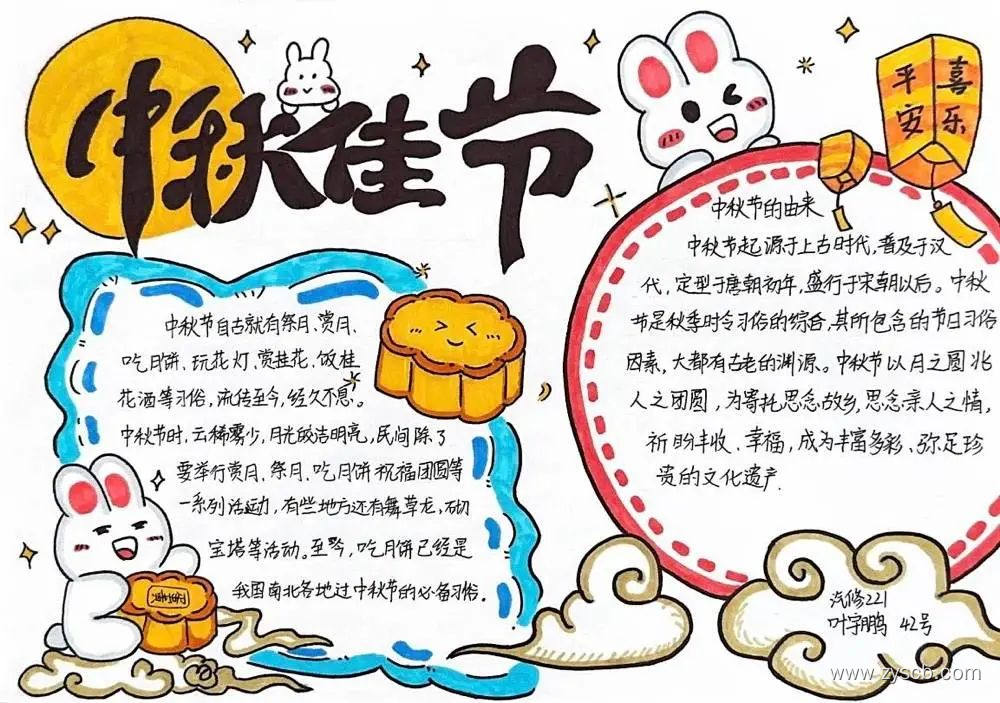 中秋佳节
平安
喜乐
中秋节自古就有祭月、赏月、
吃月饼、玩花灯、赏桂花、饮桂
花酒等习俗,流传至今,经久不息。
中秋节时,云稀雾少,月光皎洁明亮,民间除了
要举行赏月、祭月、吃月饼祝福团圆等
一系列活动,有些地方还有舞草龙,砌
宝塔等活动。至今,吃月饼已经是
我国南北各地过中秋节的必备习俗。
中秋节的由来
中秋节起源于上古时代,普及于汉
代,定型于唐朝初年,盛行于宋朝以后。中秋
节是秋季时令习俗的综合,其所包含的节日习俗
因素,大都有古老的渊源。中秋节以月之圆兆
人之团圆,为寄托思念故乡,思念亲人之情,
祈盼丰收、幸福,成为丰富多彩、弥足珍
贵的文化遗产.
汽修221
叶宇鹏 42号
www.zyscb.com